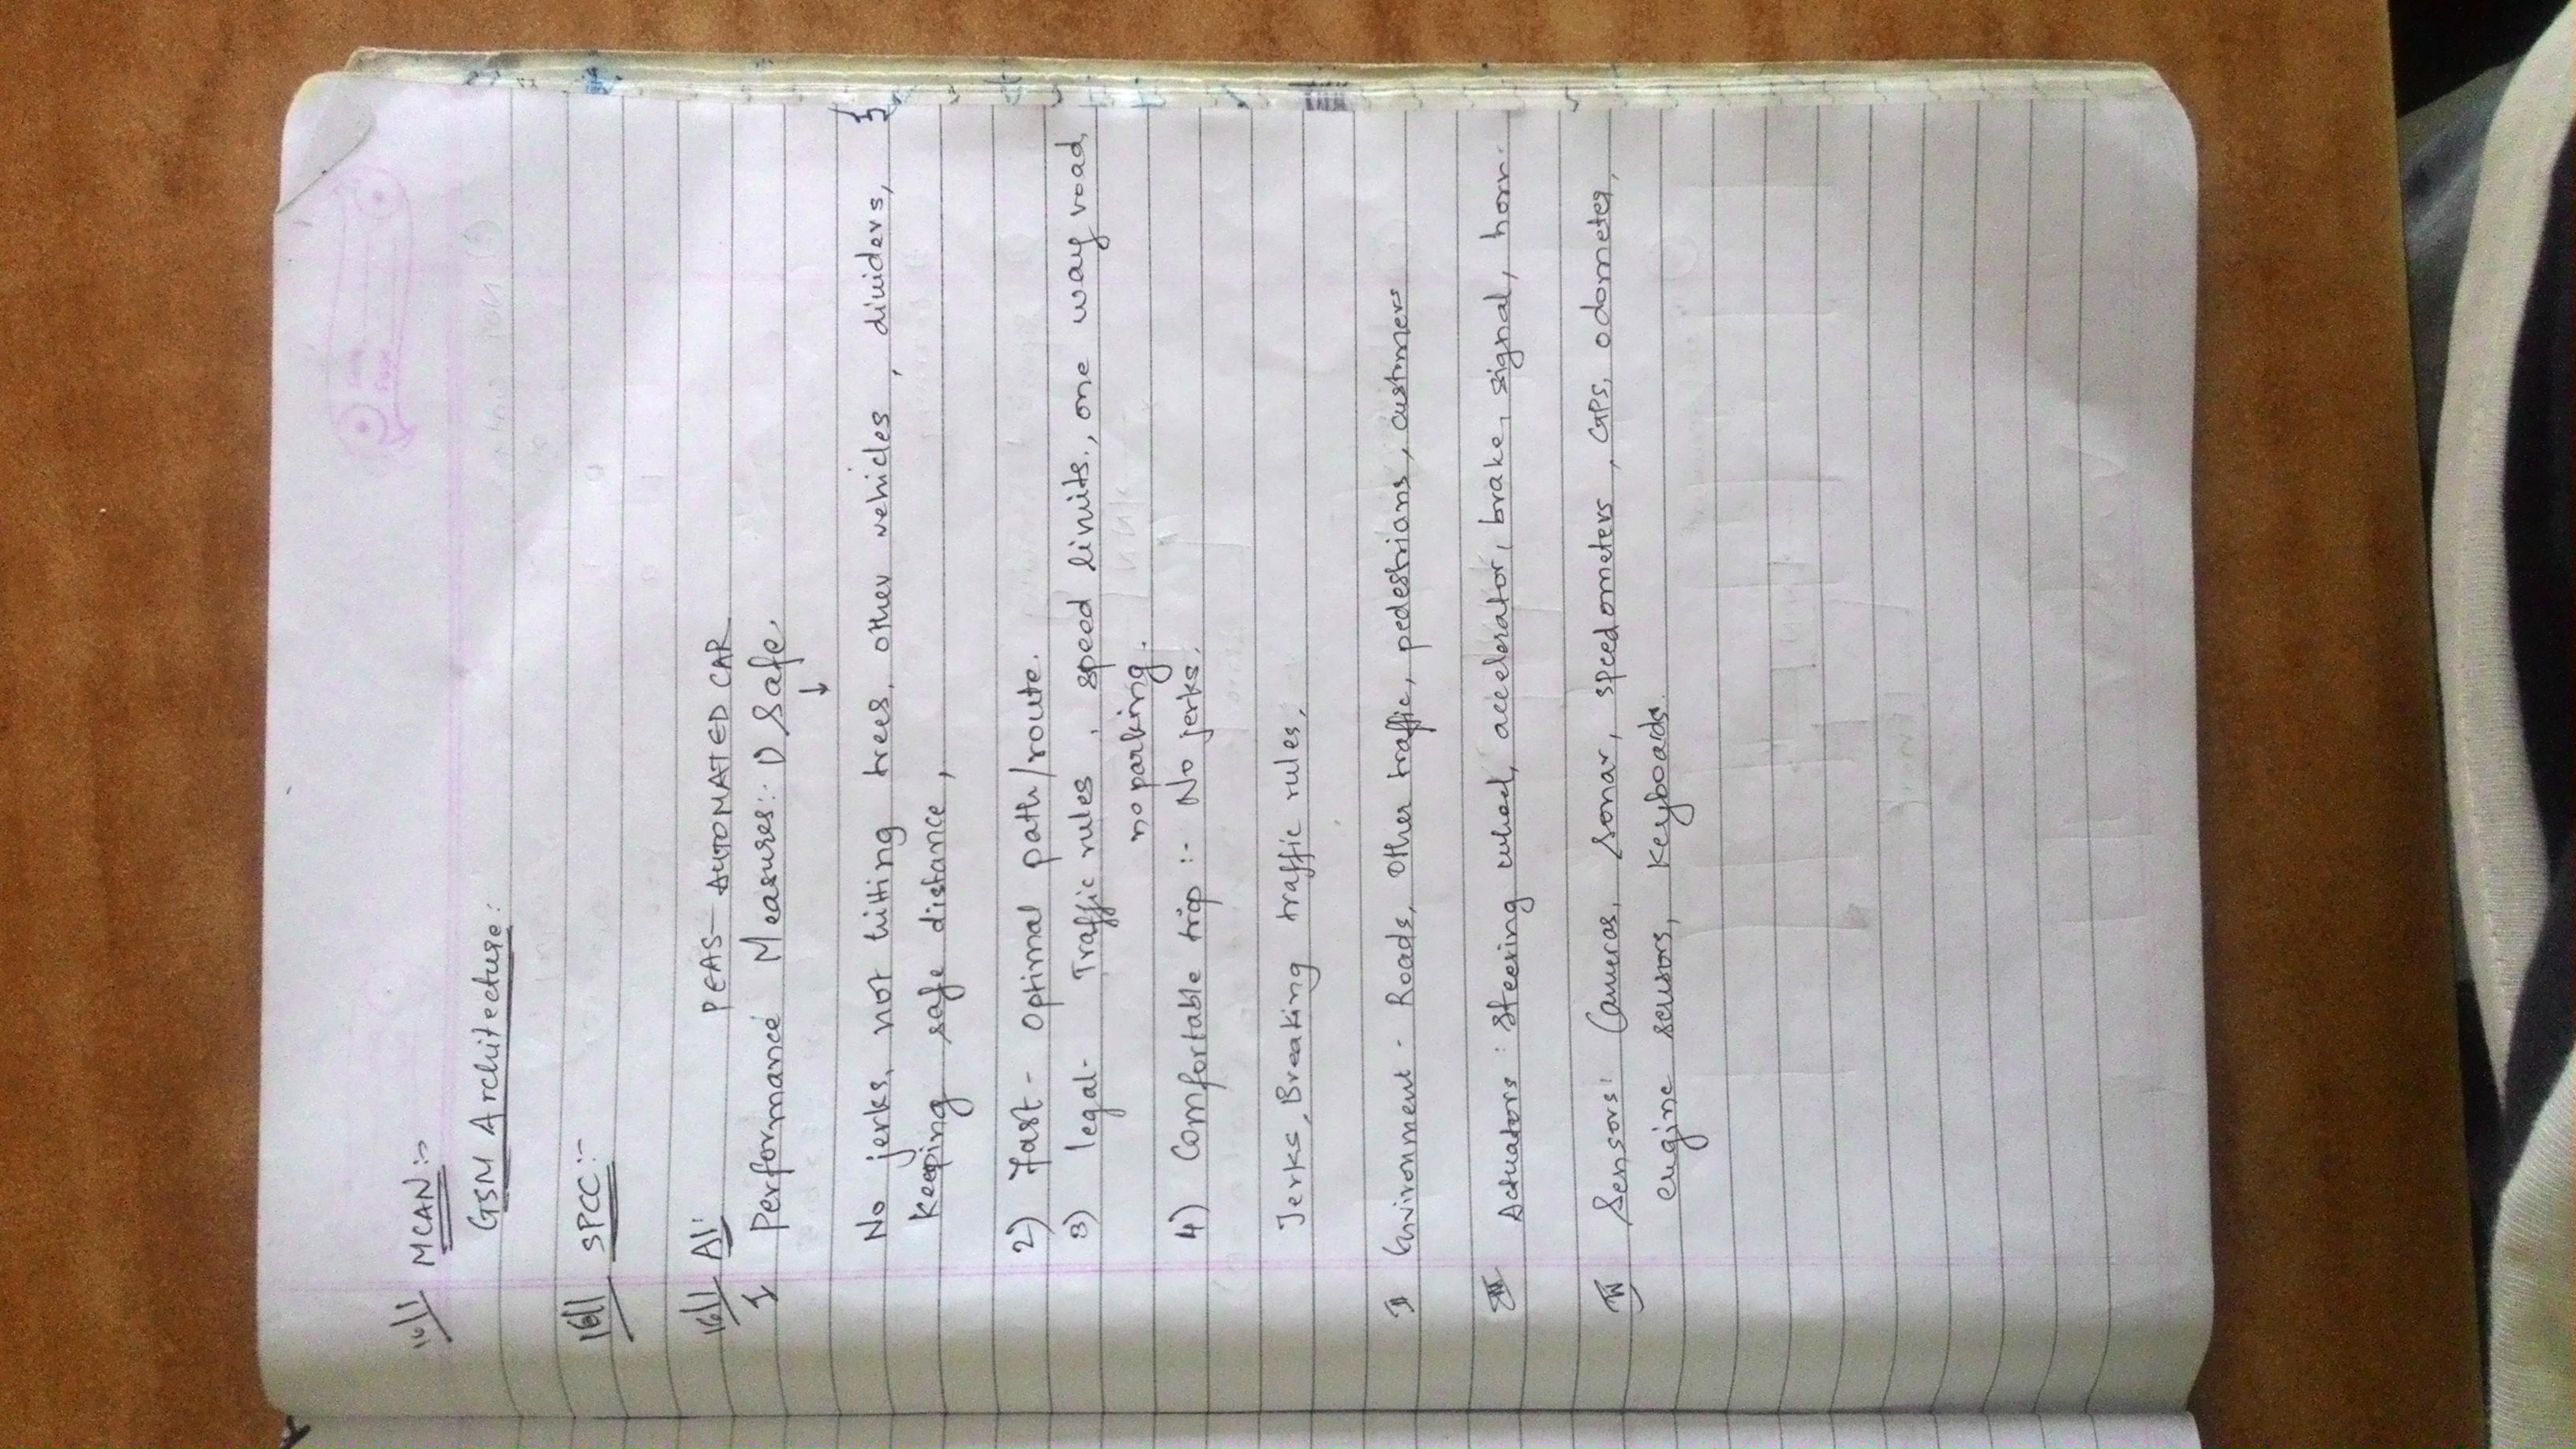 16/1 MCAN :-
GSM Architecture :
16/1 SPCC :-
16/1 AI:
PEAS - AUTOMATED CAR
I Performance Measures :- 1) Safe,
↓
No jerks, not hitting trees, other vehicles, dividers, }
Keeping safe distance,
2) Fast - Optimal path/route.
3) legal - Traffic rules, speed limits, one way road,
no parking.
4) Comfortable trip :- No jerks,
Jerks, Breaking traffic rules,
II Environment - Roads, Other traffic, pedestrians, custmers
III Actuators : Steering wheel, accelerator, brake, signal, horn.
IV Sensors : Cameras, sonar, speedometers, GPS, odometer,
engine sensors, keyboards.